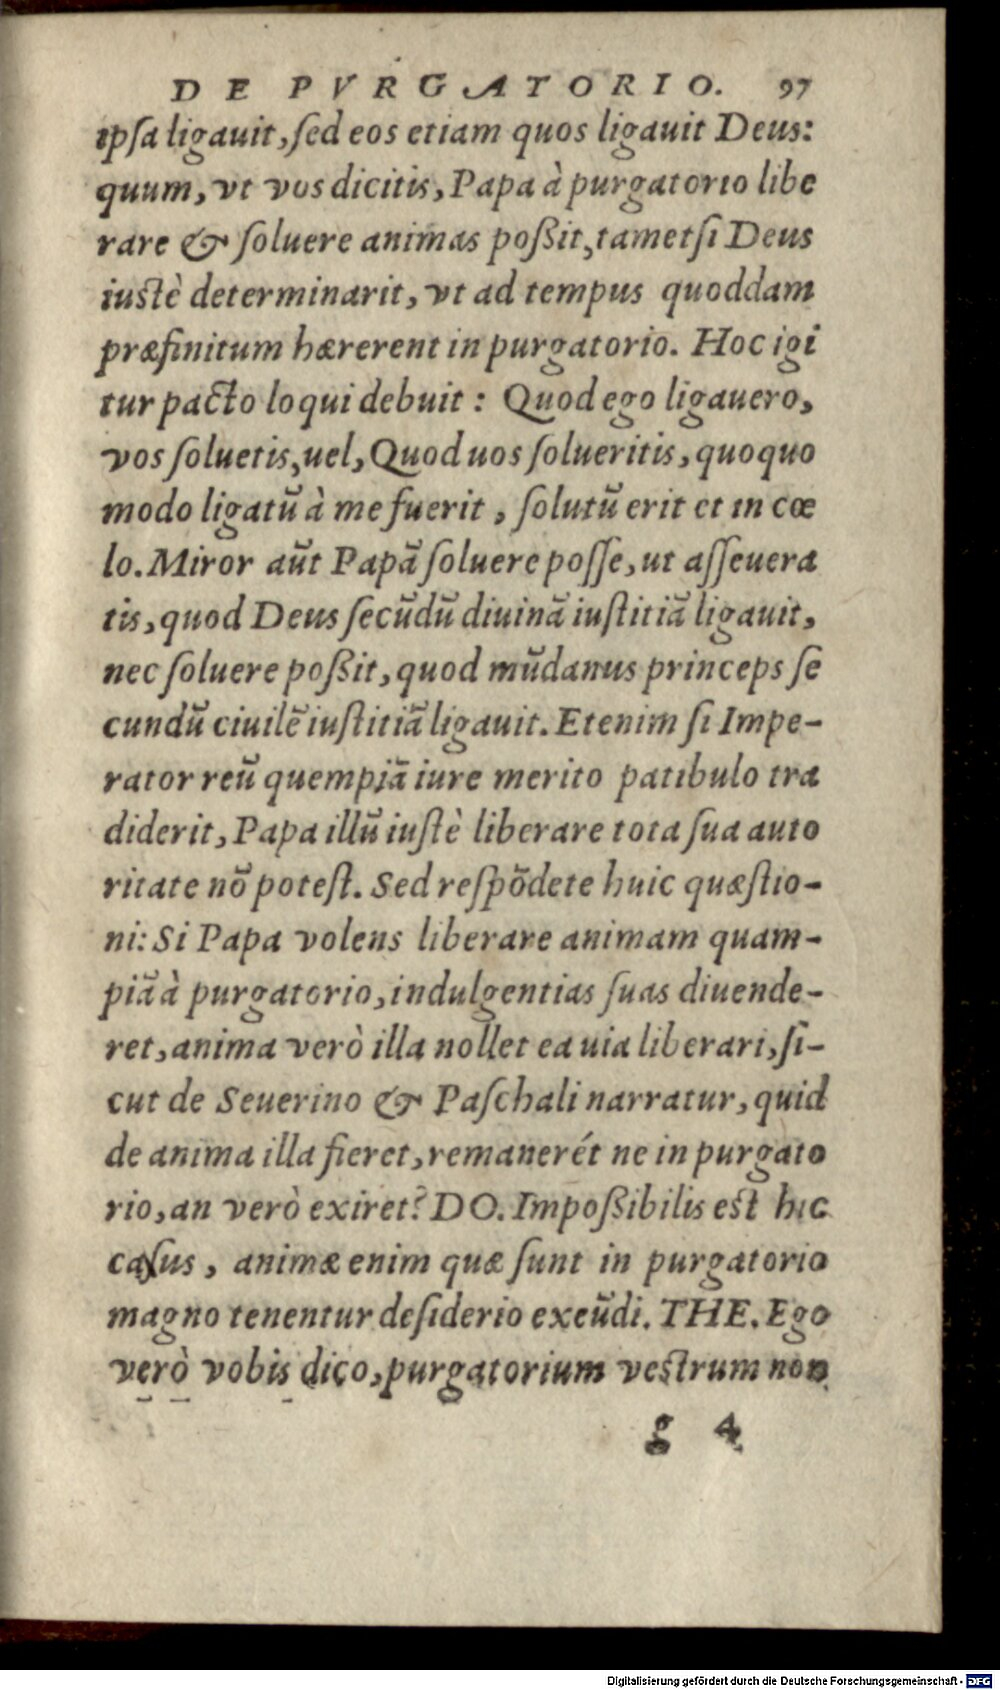 DE PVRGATORIO. 97
ipsa ligauit, sed eos etiam quos ligauit Deus:
quum, vt vos dicitis, Papa à purgatorio libe
rare & soluere animas poßit, tametsi Deus
iustè determinarit, vt ad tempus quoddam
præfinitum hærerent in purgatorio. Hoc igi
tur pacto loqui debuit: Quod ego ligauero,
vos soluetis, uel, Quod uos solueritis, quoquo
modo ligatũ à me fuerit, solutũ erit et in cœ
lo. Miror aũt Papã soluere posse, ut asseuera
tis, quod Deus secũdũ diuinã iustitiã ligauit,
nec soluere poßit, quod mũdanus princeps se
cundũ ciuilẽ iustitiã ligauit. Etenim si Impe-
rator reũ quempiã iure merito patibulo tra
diderit, Papa illũ iustè liberare tota sua auto
ritate nõ potest. Sed respõdete huic quæstio-
ni: Si Papa volens liberare animam quam-
piã à purgatorio, indulgentias suas diuende-
ret, anima verò illa nollet ea uia liberari, si-
cut de Seuerino & Paschali narratur, quid
de anima illa fieret, remanerét ne in purgato
rio, an verò exiret? DO. Impoßibilis est hic
casus, animæ enim quæ sunt in purgatorio
magno tenentur desiderio exeũdi. THE. Ego
verò vobis dico, purgatorium vestrum non
g 4
Digitalisierung gefördert durch die Deutsche Forschungsgemeinschaft - DFG